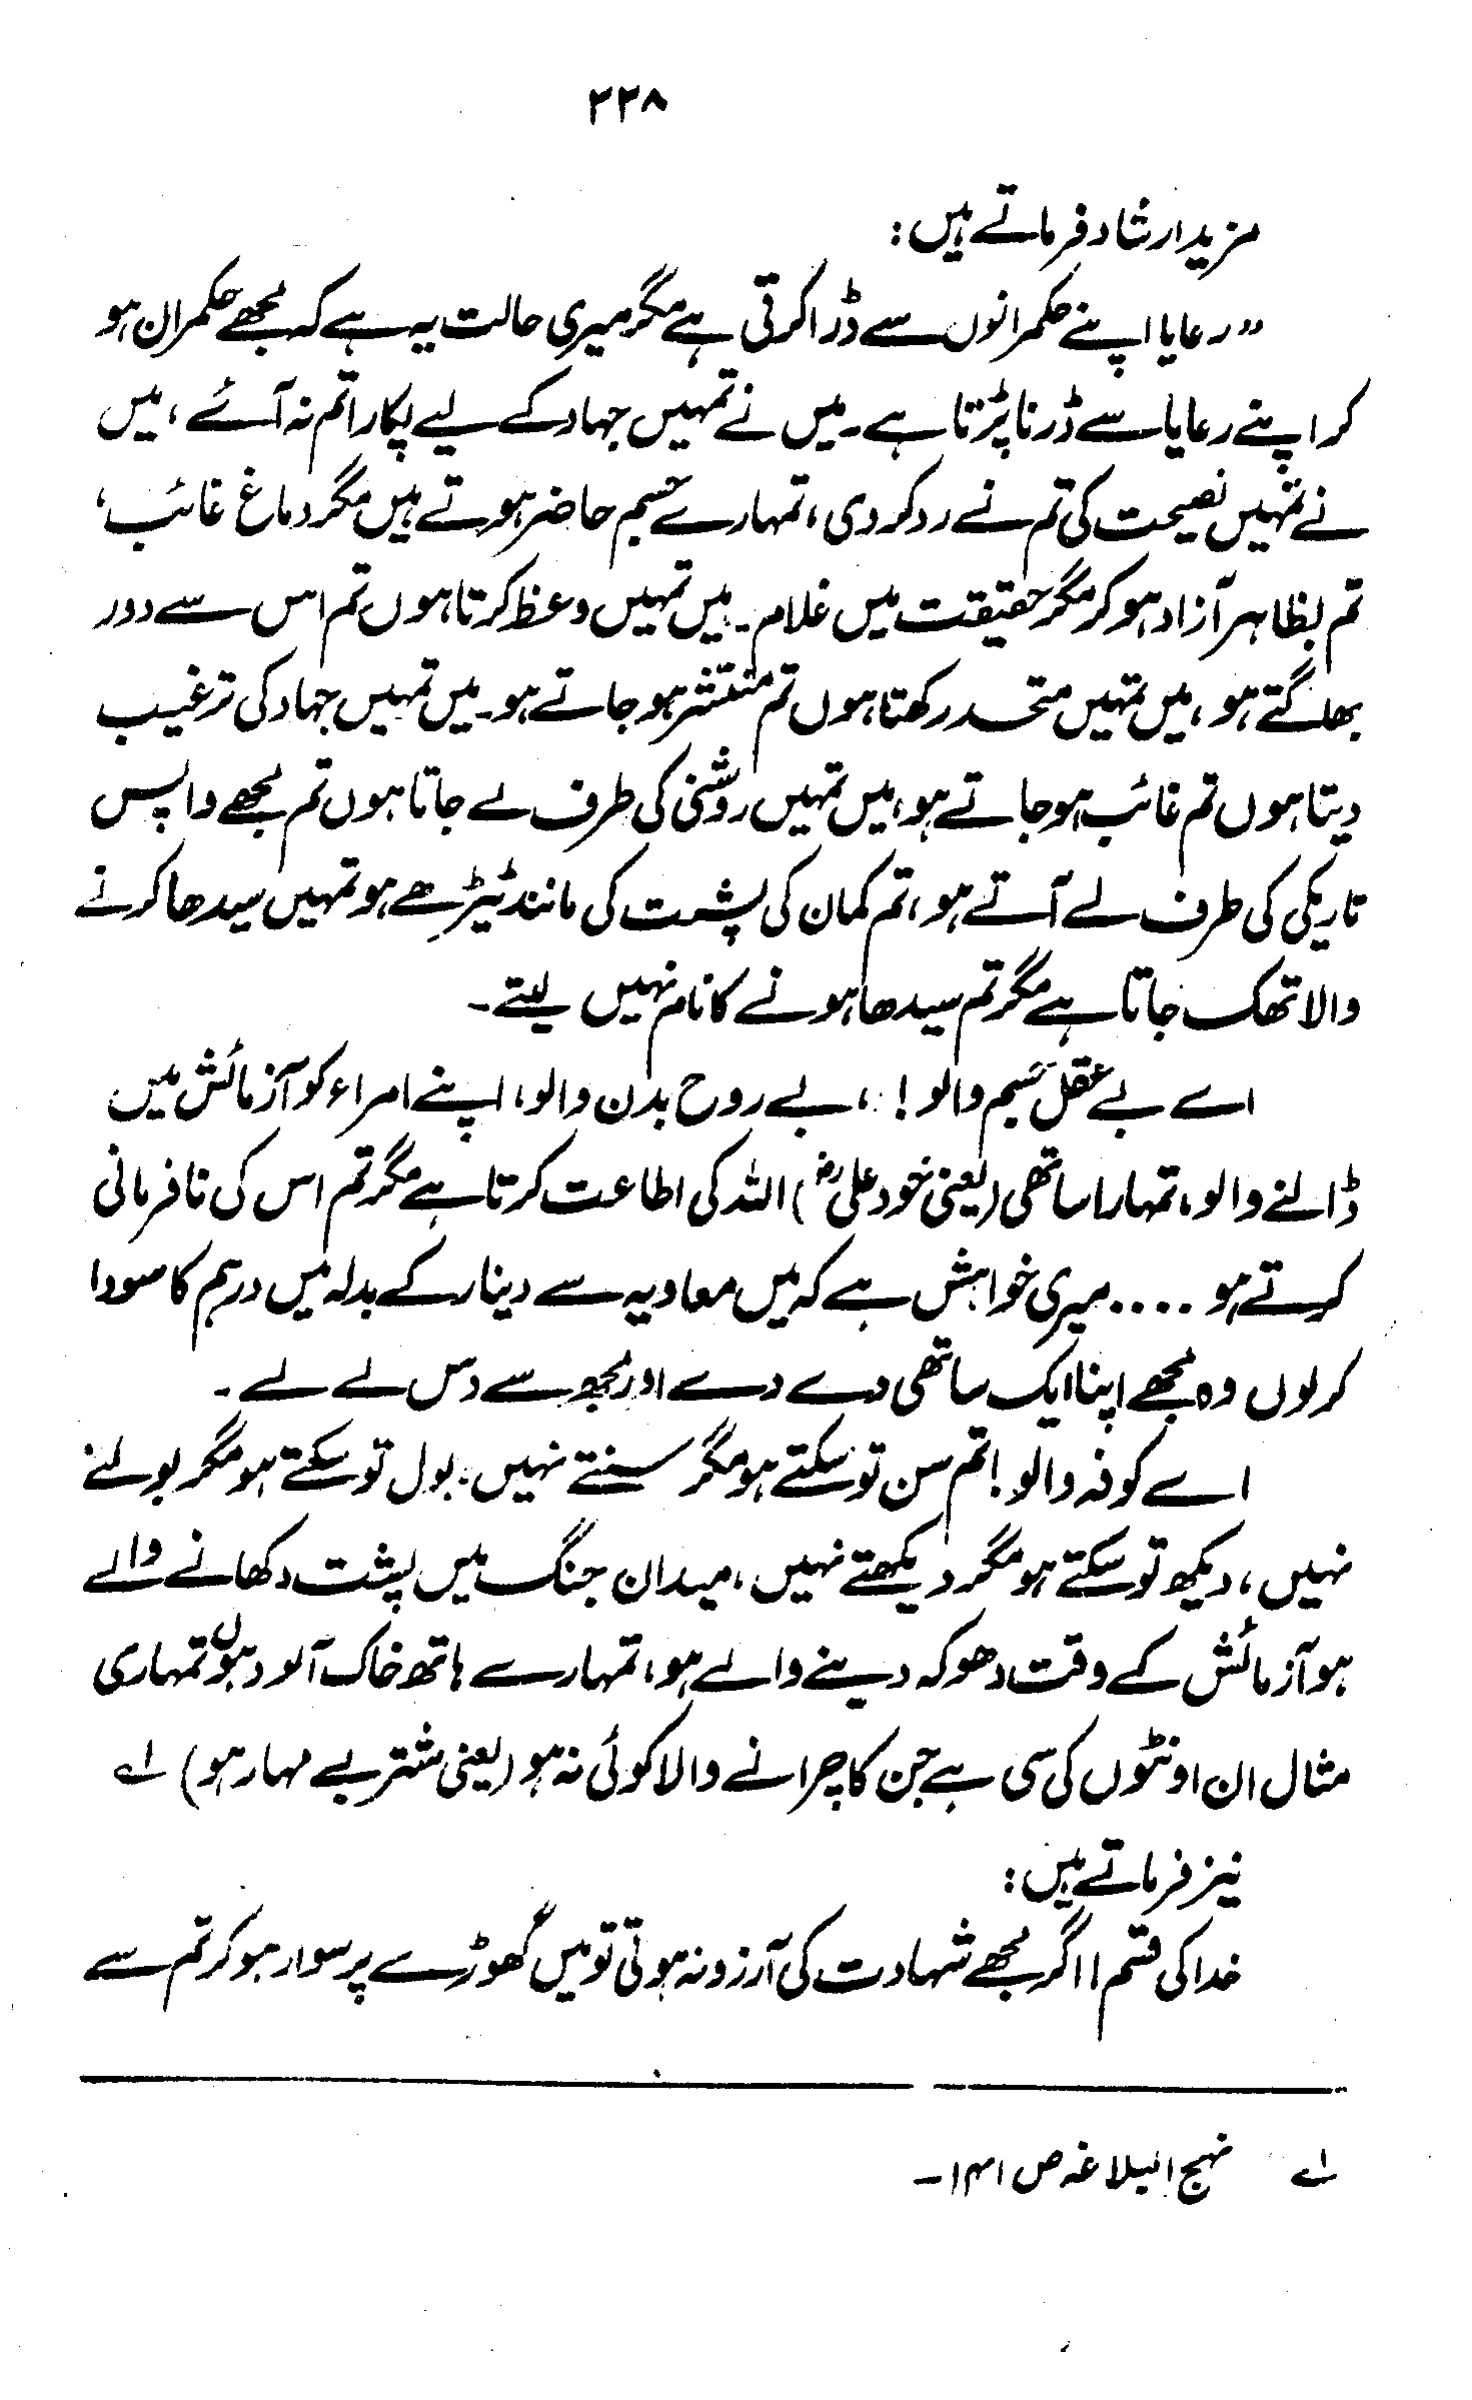 ۲۲۸
مزید ارشاد فرماتے ہیں:
”رعایا اپنے حکمرانوں سے ڈرا کرتی ہے مگر میری حالت یہ ہے کہ مجھے حکمران ہو
کر اپنے رعایا سے ڈرنا پڑتا ہے۔ میں نے تمہیں جہاد کے لیے پکارا تم نہ آئے، میں
نے تمہیں نصیحت کی تم نے رد کر دی، تمہارے جسم حاضر ہوتے ہیں مگر دماغ غائب،
تم بظاہر آزاد ہو کر مگر حقیقت میں غلام۔ میں تمہیں وعظ کرتا ہوں تم اس سے دور
بھاگتے ہو، میں تمہیں متحد رکھتا ہوں تم منتشر ہو جاتے ہو۔ میں تمہیں جہاد کی ترغیب
دیتا ہوں تم غائب ہو جاتے ہو، میں تمہیں روشنی کی طرف لے جاتا ہوں تم مجھے واپس
تاریکی کی طرف لے آتے ہو، تم کمان کی پشت کی مانند ٹیڑھے ہو تمہیں سیدھا کرنے
والا تھک جاتا ہے مگر تم سیدھا ہونے کا نام نہیں لیتے۔
اے بے عقل جسم والو!، بے روح بدن والو، اپنے امراء کو آزمائش میں
ڈالنے والو، تمہارا ساتھی (یعنی خود علیؓ) اللہ کی اطاعت کرتا ہے مگر تم اس کی نافرمانی
کرتے ہو .... میری خواہش ہے کہ میں معاویہ سے دینار کے بدلہ میں درہم کا سودا
کر لوں وہ مجھے اپنا ایک ساتھی دے دے اور مجھ سے دس لے لے۔
اے کوفہ والو! تم سن تو سکتے ہو مگر سنتے نہیں، بول تو سکتے ہو مگر بولتے
نہیں، دیکھ تو سکتے ہو مگر دیکھتے نہیں، میدان جنگ میں پشت دکھانے والے
ہو آزمائش کے وقت دھوکہ دینے والے ہو، تمہارے ہاتھ خاک آلود ہوں تمہاری
مثال ان اونٹوں کی سی ہے جن کا چرانے والا کوئی نہ ہو (یعنی شتر بے مہار ہو) ؂۱
نیز فرماتے ہیں:
خدا کی قسم! اگر مجھے شہادت کی آرزو نہ ہوتی تو میں گھوڑے پر سوار ہو کر تم سے
؂۱ نہج البلاغہ ص ۱۴۱۔